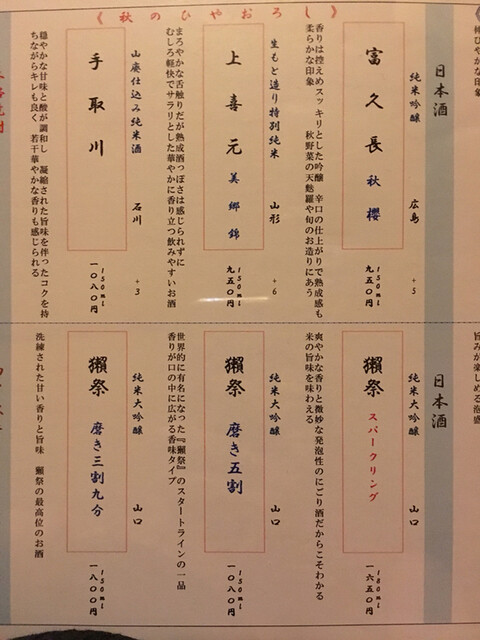 《秋のひやおろし》
日本酒
純米吟醸 広島 +5
富久長 秋櫻
150ml
九五〇円
香りは控えめスッキリとした吟醸 辛口の仕上がりで熟成感も
柔らかな印象 秋野菜の天麩羅や旬のお造りにあう
生もと造り特別純米 山形 +6
上喜元 美郷錦
150ml
九五〇円
まろやかな舌触りだが熟成酒っぽさは感じられずに
むしろ軽快でサラリとした華やかに香り立つ飲みやすいお酒
山廃仕込み純米酒 石川 +3
手取川
150ml
一〇八〇円
穏やかな甘味と酸が調和し 凝縮された旨味を伴ったコクを持
ちながらキレも良く 若干華やかな香りも感じられる
日本酒
純米大吟醸 山口
獺祭 スパークリング
180ml
一六五〇円
爽やかな香りと微妙な発泡性のにごり酒だからこそわかる
米の旨味を味わえる
純米大吟醸 山口
獺祭 磨き五割
150ml
一〇八〇円
世界的に有名になった『獺祭』のスタートラインの一品
香りが口の中に広がる香味タイプ
純米大吟醸 山口
獺祭 磨き三割九分
150ml
一八〇〇円
洗練された甘い香りと旨味 獺祭の最高位のお酒